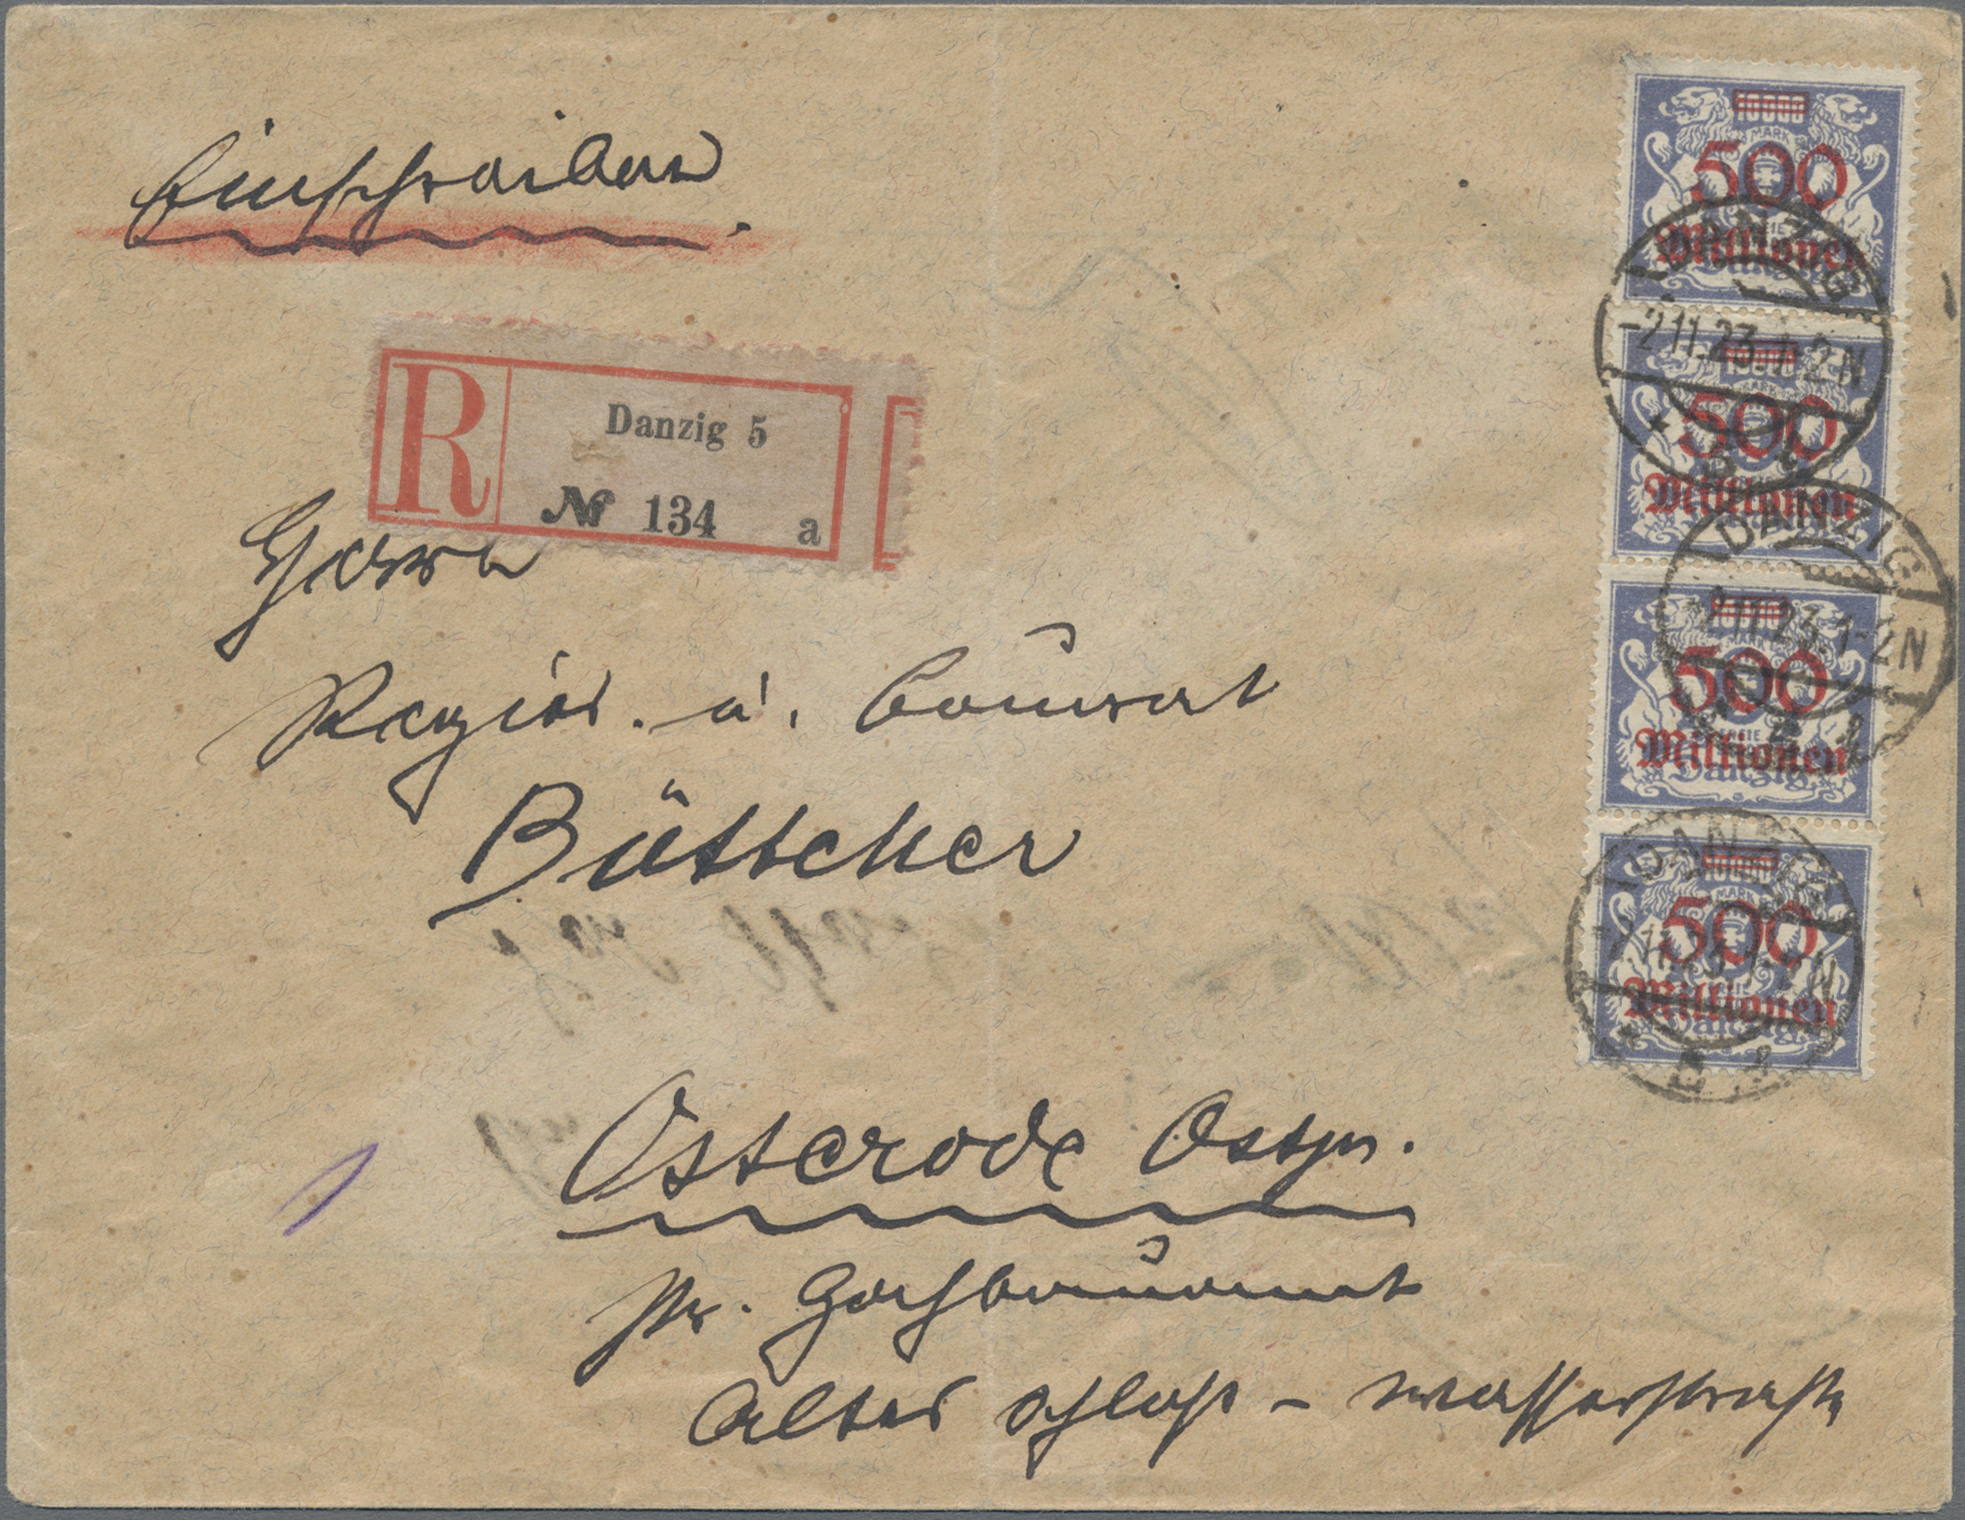 Einschreiben.
R
Danzig 5
№ 134 a
Herrn
Regier. u. Baurat
Böttcher
Osterode Ostpr.
Pr. Hochbauamt
Altes Schloß - Wasserstraße
10000
MARK
500
Millionen
DANZIG
-2.11.23.1-2N
10000
MARK
500
Millionen
DANZIG
-2.11.23.1-2N
10000
MARK
500
Millionen
Danzig
DANZIG
10000
MARK
500
Millionen
Danzig